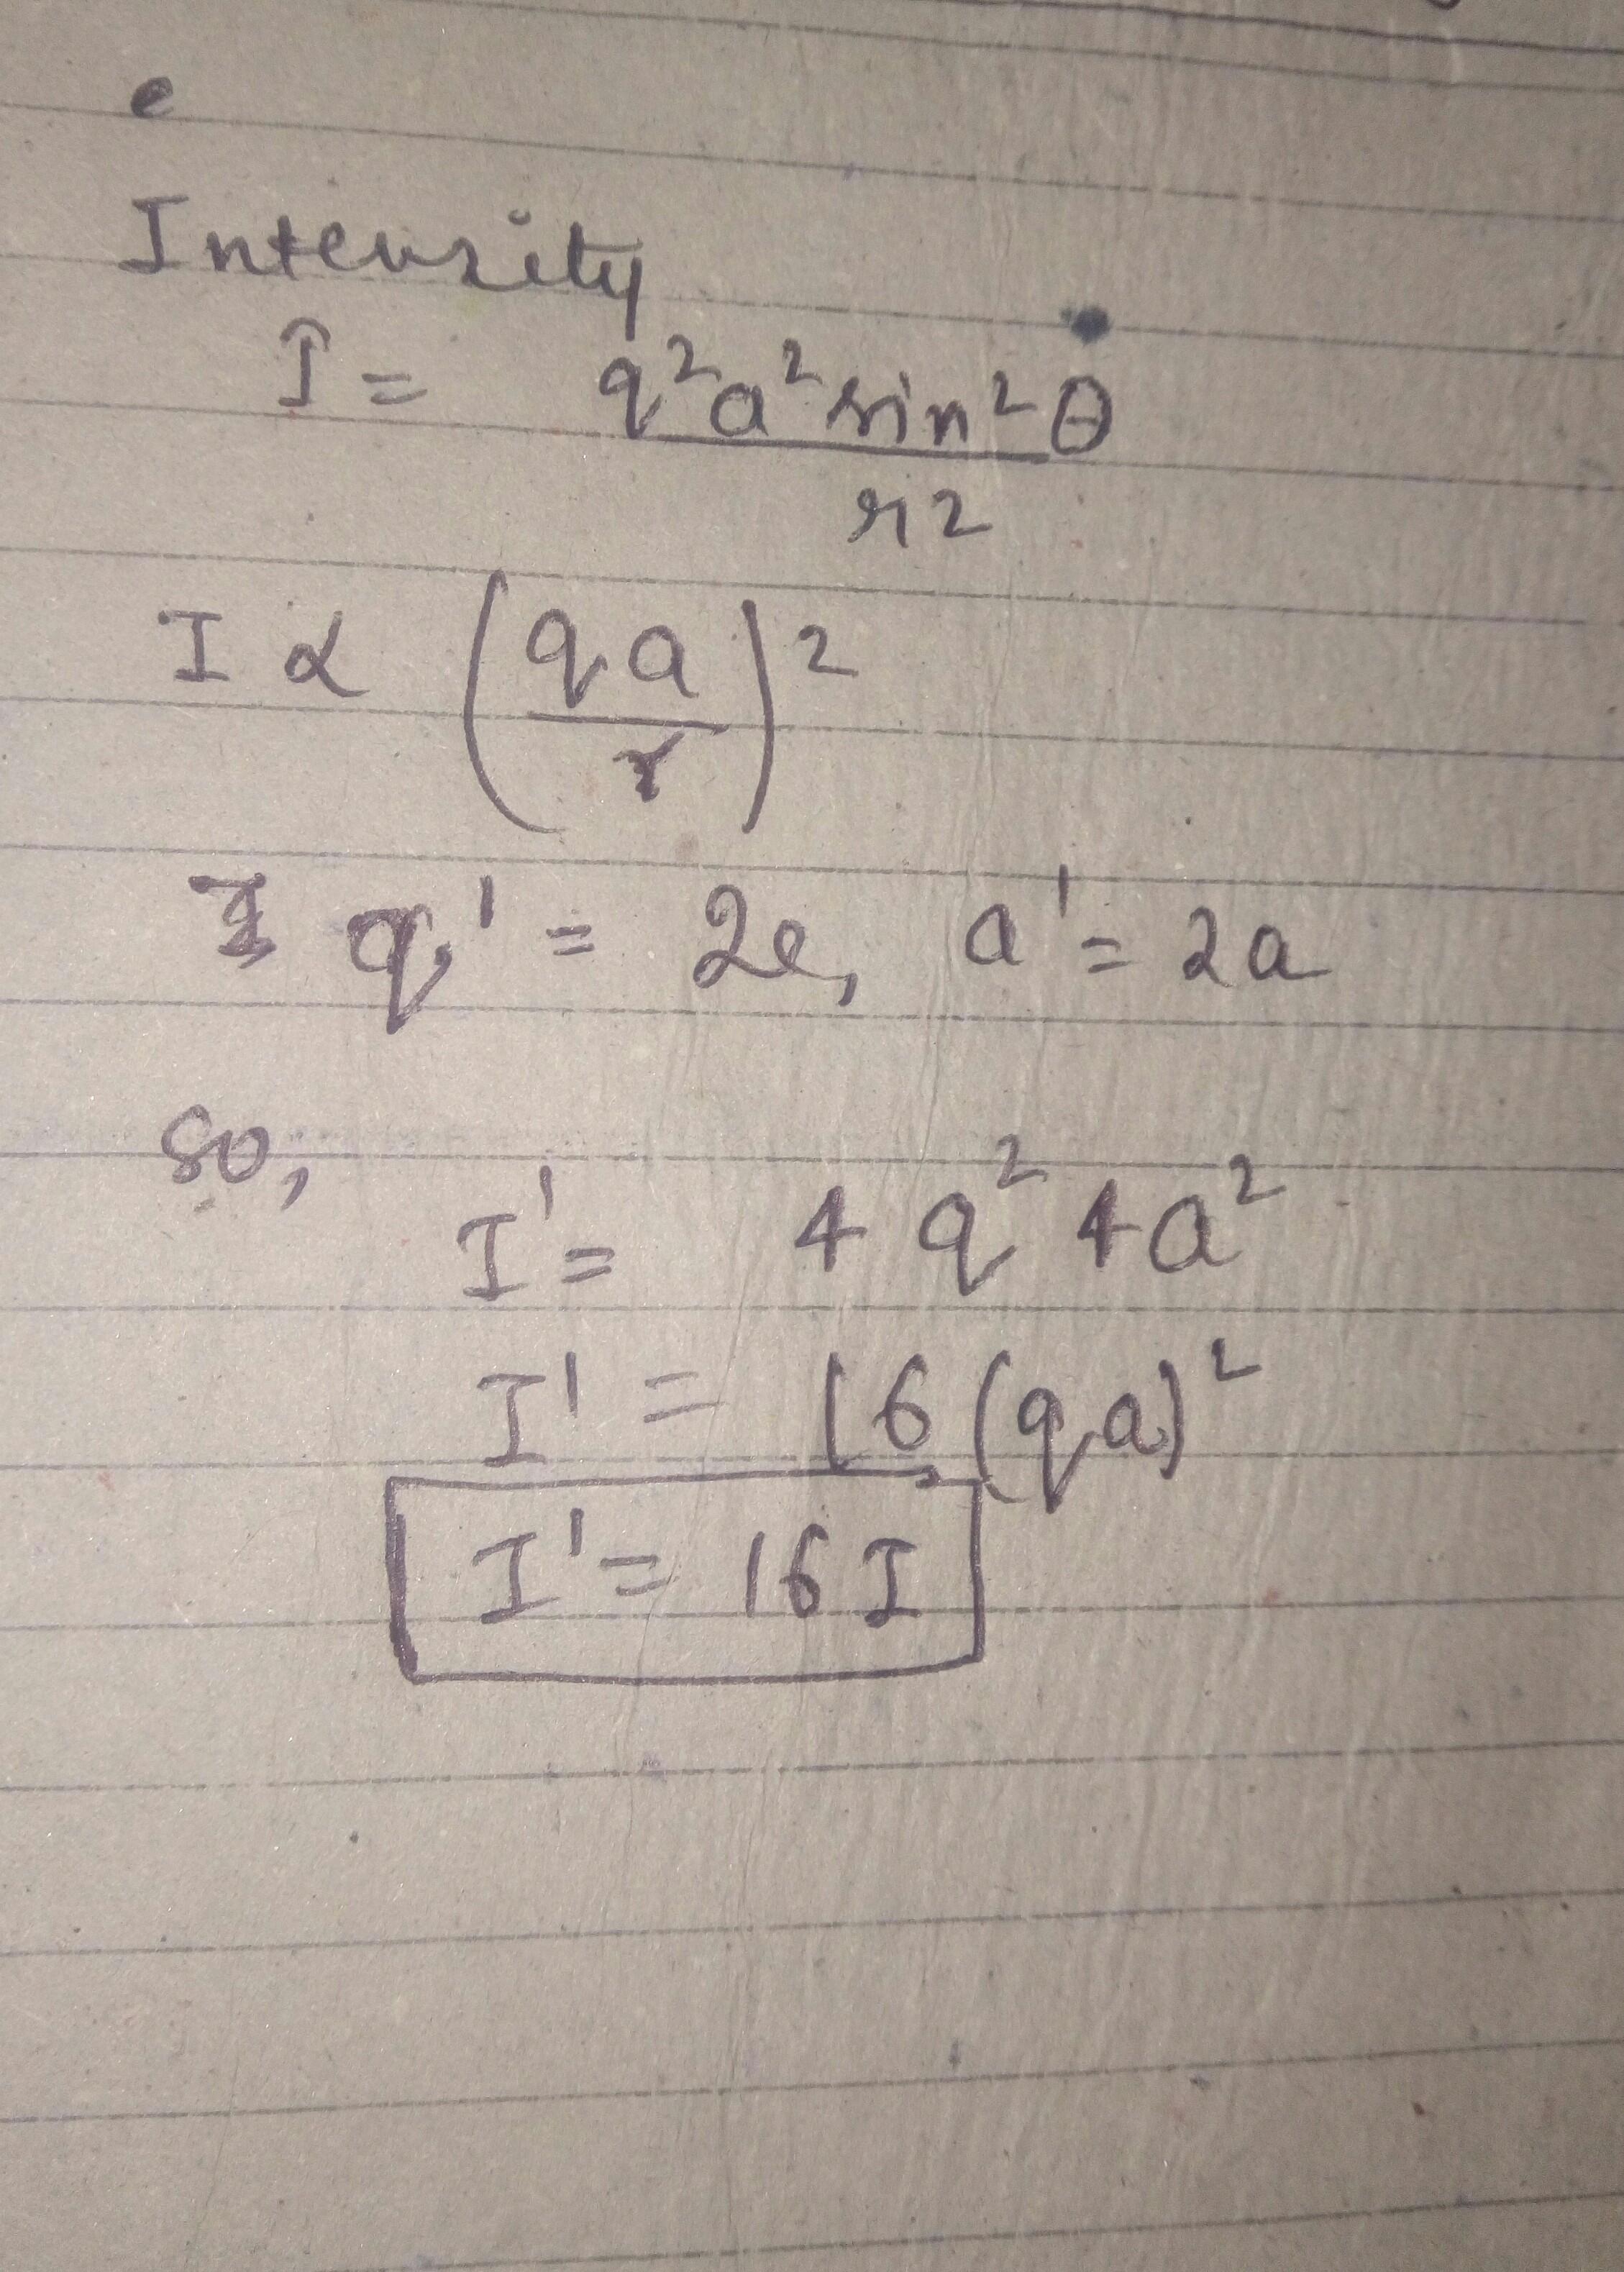 e
Intensity
I = q²a² sin²θ
r²
I α (qa/r)²
q' = 2e, a' = 2a
so,
I' = 4q² 4a²
I' = 16(qa)²
I' = 16I